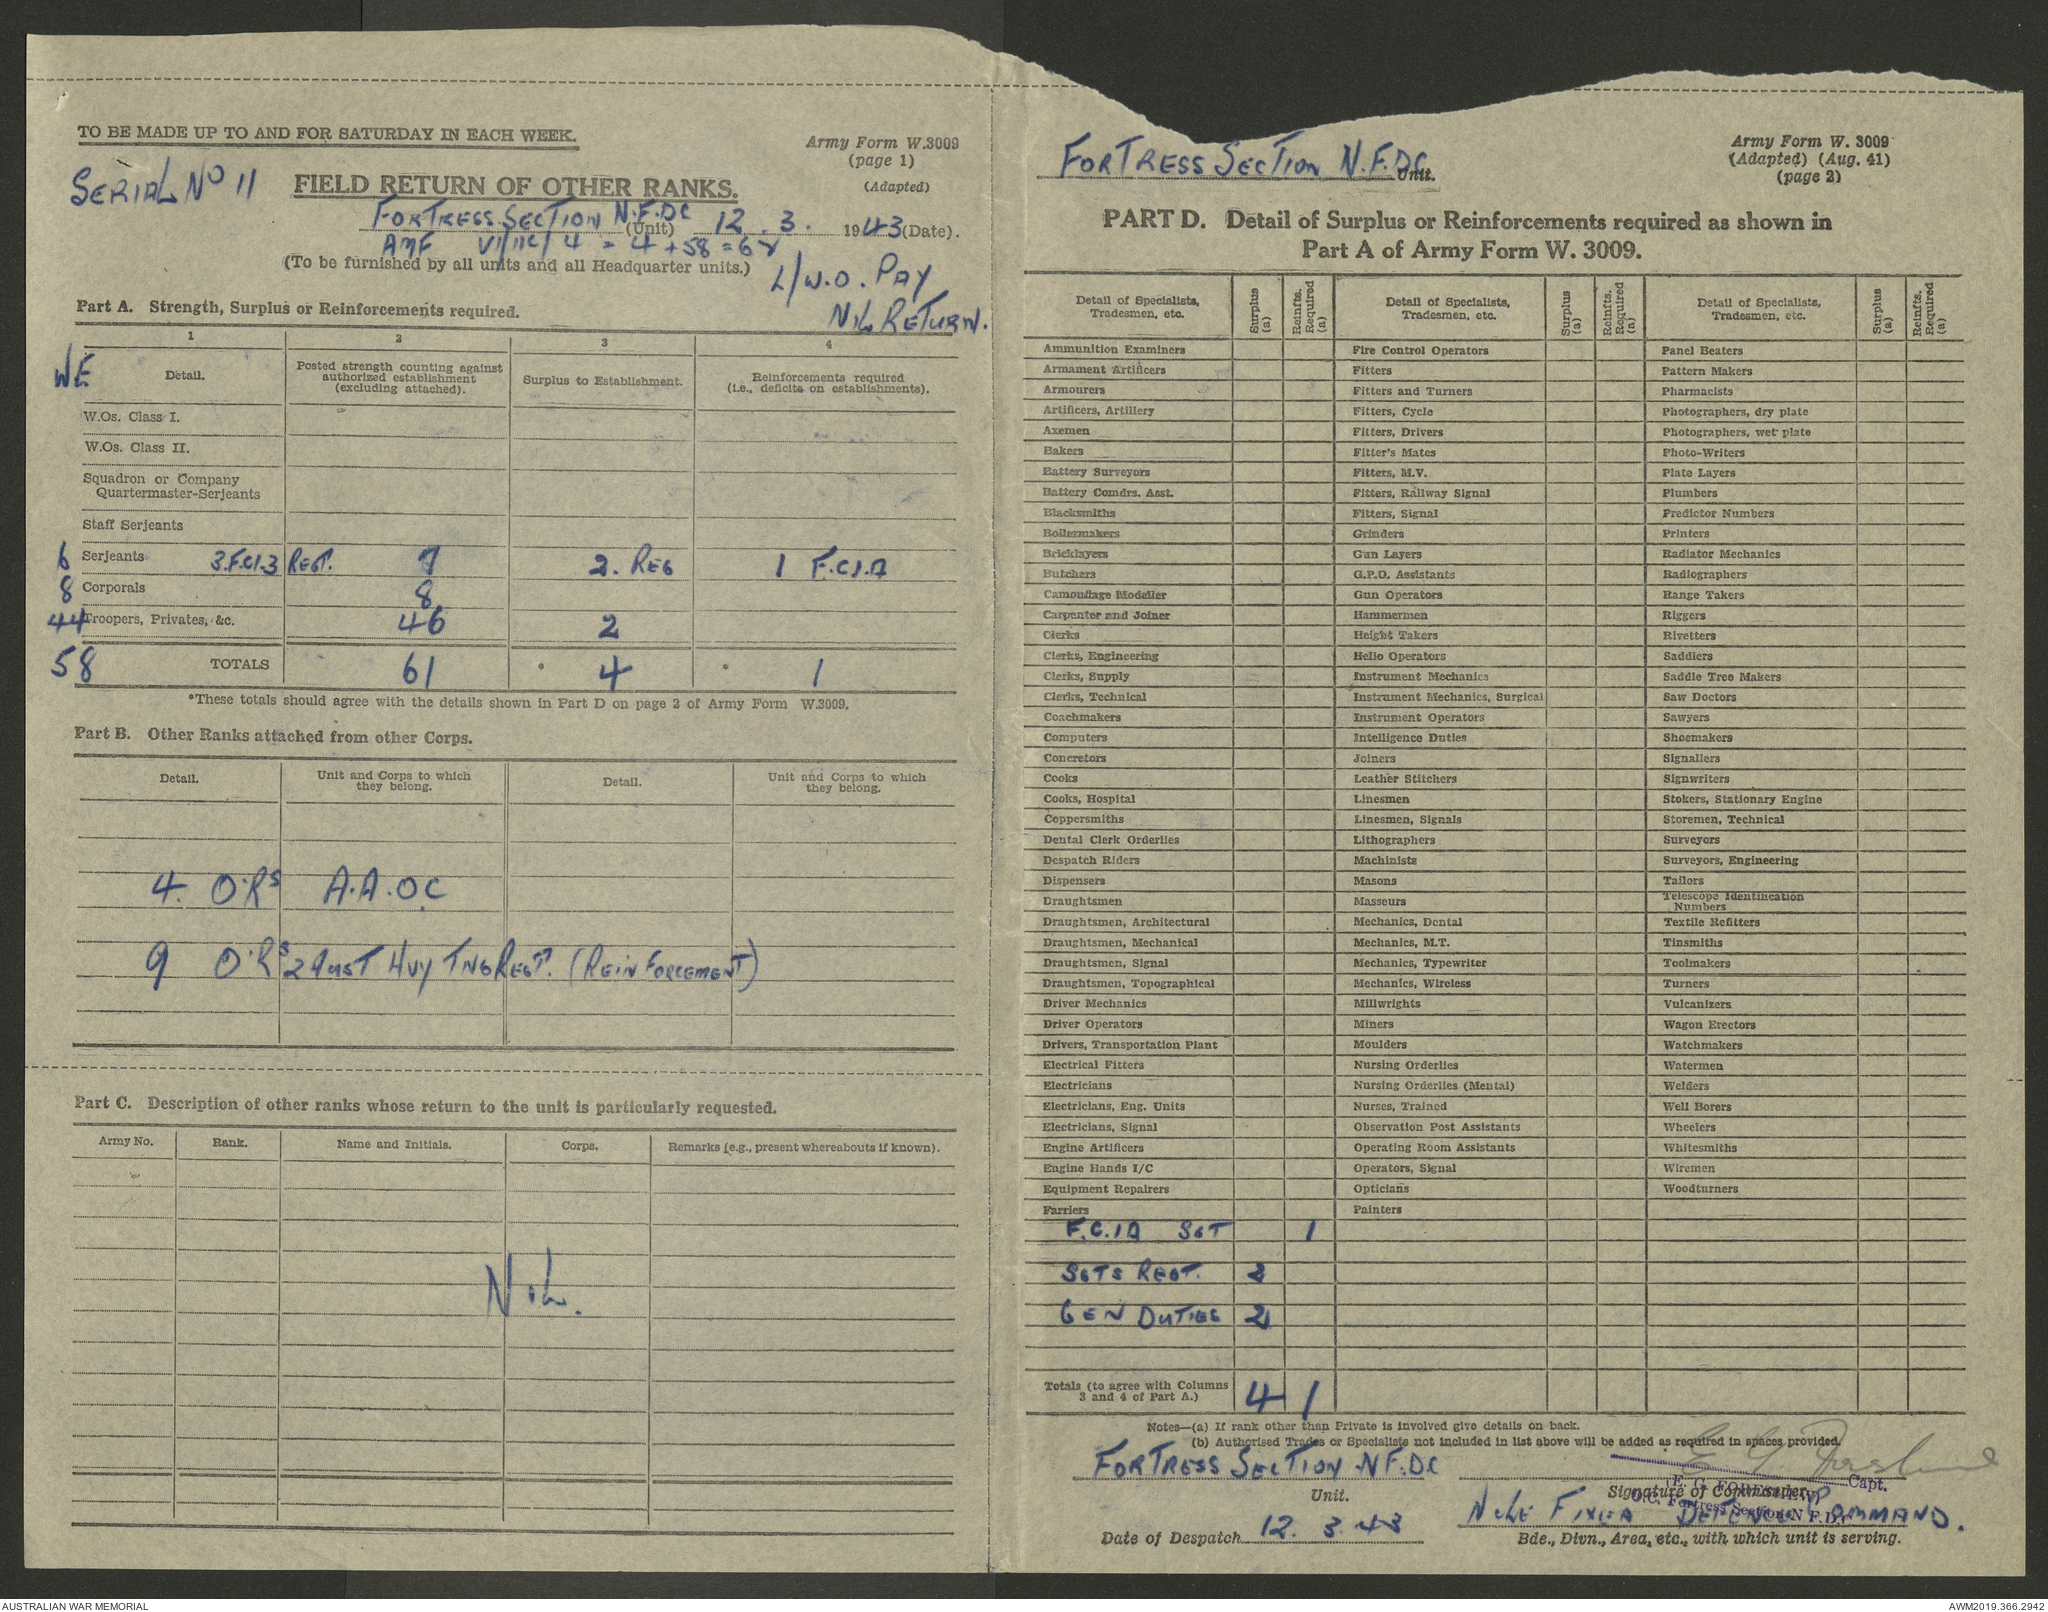 TO BE MADE UP TO AND FOR SATURDAY IN EACH WEEK.
Army Form W.3009
(page 1)
(Adapted)
SERIAL NO 11
FIELD RETURN OF OTHER RANKS.
FORTRESS SECTION N.F.DC (Unit) 12.3. 1943 (Date).
AMF VI/11C/4 = 4 + 58 = 62
(To be furnished by all units and all Headquarter units.)
L/W.O. PAY
NIL RETURN.
Part A. Strength, Surplus or Reinforcements required.
1 2 3 4
WE
Detail. Posted strength counting against authorized establishment (excluding attached). Surplus to Establishment. Reinforcements required (i.e., deficits on establishments).
W.Os. Class I.
W.Os. Class II.
Squadron or Company
Quartermaster-Serjeants
Staff Serjeants
6 Serjeants REGT. 7 2. REG 1
8 Corporals 8
44 Troopers, Privates, &c. 46 2
58 TOTALS 61 * 4 * 1
*These totals should agree with the details shown in Part D on page 2 of Army Form W.3009.
Part B. Other Ranks attached from other Corps.
Detail. Unit and Corps to which they belong. Detail. Unit and Corps to which they belong.
4. O.Rs A.A.O.C
9 O.Rs 2 AUST HVY TNG REGT. (REINFORCEMENT)
Part C. Description of other ranks whose return to the unit is particularly requested.
Army No. Rank. Name and Initials. Corps. Remarks (e.g., present whereabouts if known).
NIL.
FORTRESS SECTION N.F.DC. Unit.
Army Form W. 3009
(Adapted) (Aug. 41)
(page 2)
PART D. Detail of Surplus or Reinforcements required as shown in
Part A of Army Form W. 3009.
Detail of Specialists, Tradesmen, etc. Surplus (a) Reinfts. Required (a) Detail of Specialists, Tradesmen, etc. Surplus (a) Reinfts. Required (a) Detail of Specialists, Tradesmen, etc. Surplus (a) Reinfts. Required (a)
Ammunition Examiners Fire Control Operators Panel Beaters
Armament Artificers Fitters Pattern Makers
Armourers Fitters and Turners Pharmacists
Artificers, Artillery Fitters, Cycle Photographers, dry plate
Axemen Fitters, Drivers Photographers, wet plate
Bakers Fitter's Mates Photo-Writers
Battery Surveyors Fitters, M.V. Plate Layers
Battery Comdrs. Asst. Fitters, Railway Signal Plumbers
Blacksmiths Fitters, Signal Predictor Numbers
Boilermakers Grinders Printers
Bricklayers Gun Layers Radiator Mechanics
Butchers G.P.O. Assistants Radiographers
Camouflage Modeller Gun Operators Range Takers
Carpenter and Joiner Hammermen Riggers
Clerks Height Takers Rivetters
Clerks, Engineering Helio Operators Saddlers
Clerks, Supply Instrument Mechanics Saddle Tree Makers
Clerks, Technical Instrument Mechanics, Surgical Saw Doctors
Coachmakers Instrument Operators Sawyers
Computers Intelligence Duties Shoemakers
Concretors Joiners Signallers
Cooks Leather Stitchers Signwriters
Cooks, Hospital Linesmen Stokers, Stationary Engine
Coppersmiths Linesmen, Signals Storemen, Technical
Dental Clerk Orderlies Lithographers Surveyors
Despatch Riders Machinists Surveyors, Engineering
Dispensers Masons Tailors
Draughtsmen Masseurs Telescope Identification Numbers
Draughtsmen, Architectural Mechanics, Dental Textile Refitters
Draughtsmen, Mechanical Mechanics, M.T. Tinsmiths
Draughtsmen, Signal Mechanics, Typewriter Toolmakers
Draughtsmen, Topographical Mechanics, Wireless Turners
Driver Mechanics Millwrights Vulcanizers
Driver Operators Miners Wagon Erectors
Drivers, Transportation Plant Moulders Watchmakers
Electrical Fitters Nursing Orderlies Watermen
Electricians Nursing Orderlies (Mental) Welders
Electricians, Eng. Units Nurses, Trained Well Borers
Electricians, Signal Observation Post Assistants Wheelers
Engine Artificers Operating Room Assistants Whitesmiths
Engine Hands I/C Operators, Signal Wiremen
Equipment Repairers Opticians Woodturners
Farriers Painters
SGT 1
SGTS REGT. 2
GEN DUTIES 2
Totals (to agree with Columns 3 and 4 of Part A.) 4 1
Notes—(a) If rank other than Private is involved give details on back.
(b) Authorised Trades or Specialists not included in list above will be added as required in spaces provided.
FORTRESS SECTION N.F.DC
Unit.
Capt.
Signature of Commander.
O.C. Fortress Section N.F.D.C.
Date of Despatch 12. 3. 43
FIXED DEFENCE COMMAND.
Bde., Divn., Area, etc., with which unit is serving.
AUSTRALIAN WAR MEMORIAL
AWM2019.366.2942